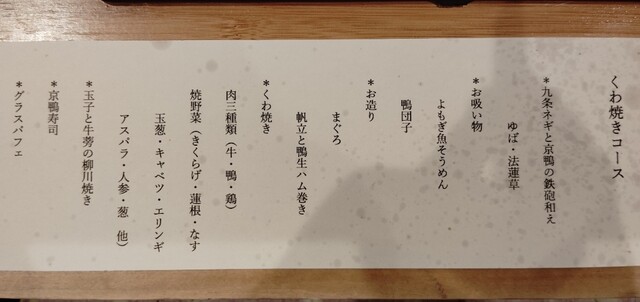 くわ焼きコース
*九条ネギと京鴨の鉄砲和え
ゆば・法蓮草
*お吸い物
よもぎ魚そうめん
鴨団子
*お造り
まぐろ
帆立と鴨生ハム巻き
*くわ焼き
肉三種類(牛・鴨・鶏)
焼野菜(きくらげ・蓮根・なす
玉葱・キャベツ・エリンギ
アスパラ・人参・葱 他)
*玉子と牛蒡の柳川焼き
*京鴨寿司
*グラスパフェ